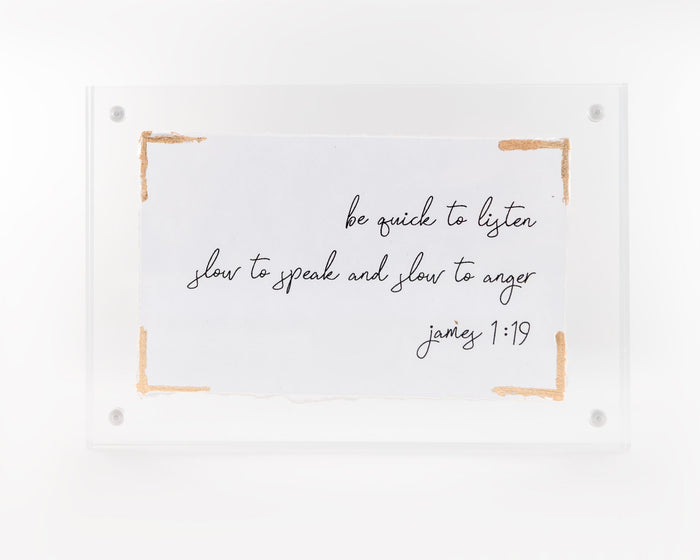 be quick to listen
slow to speak and slow to anger
james 1:19